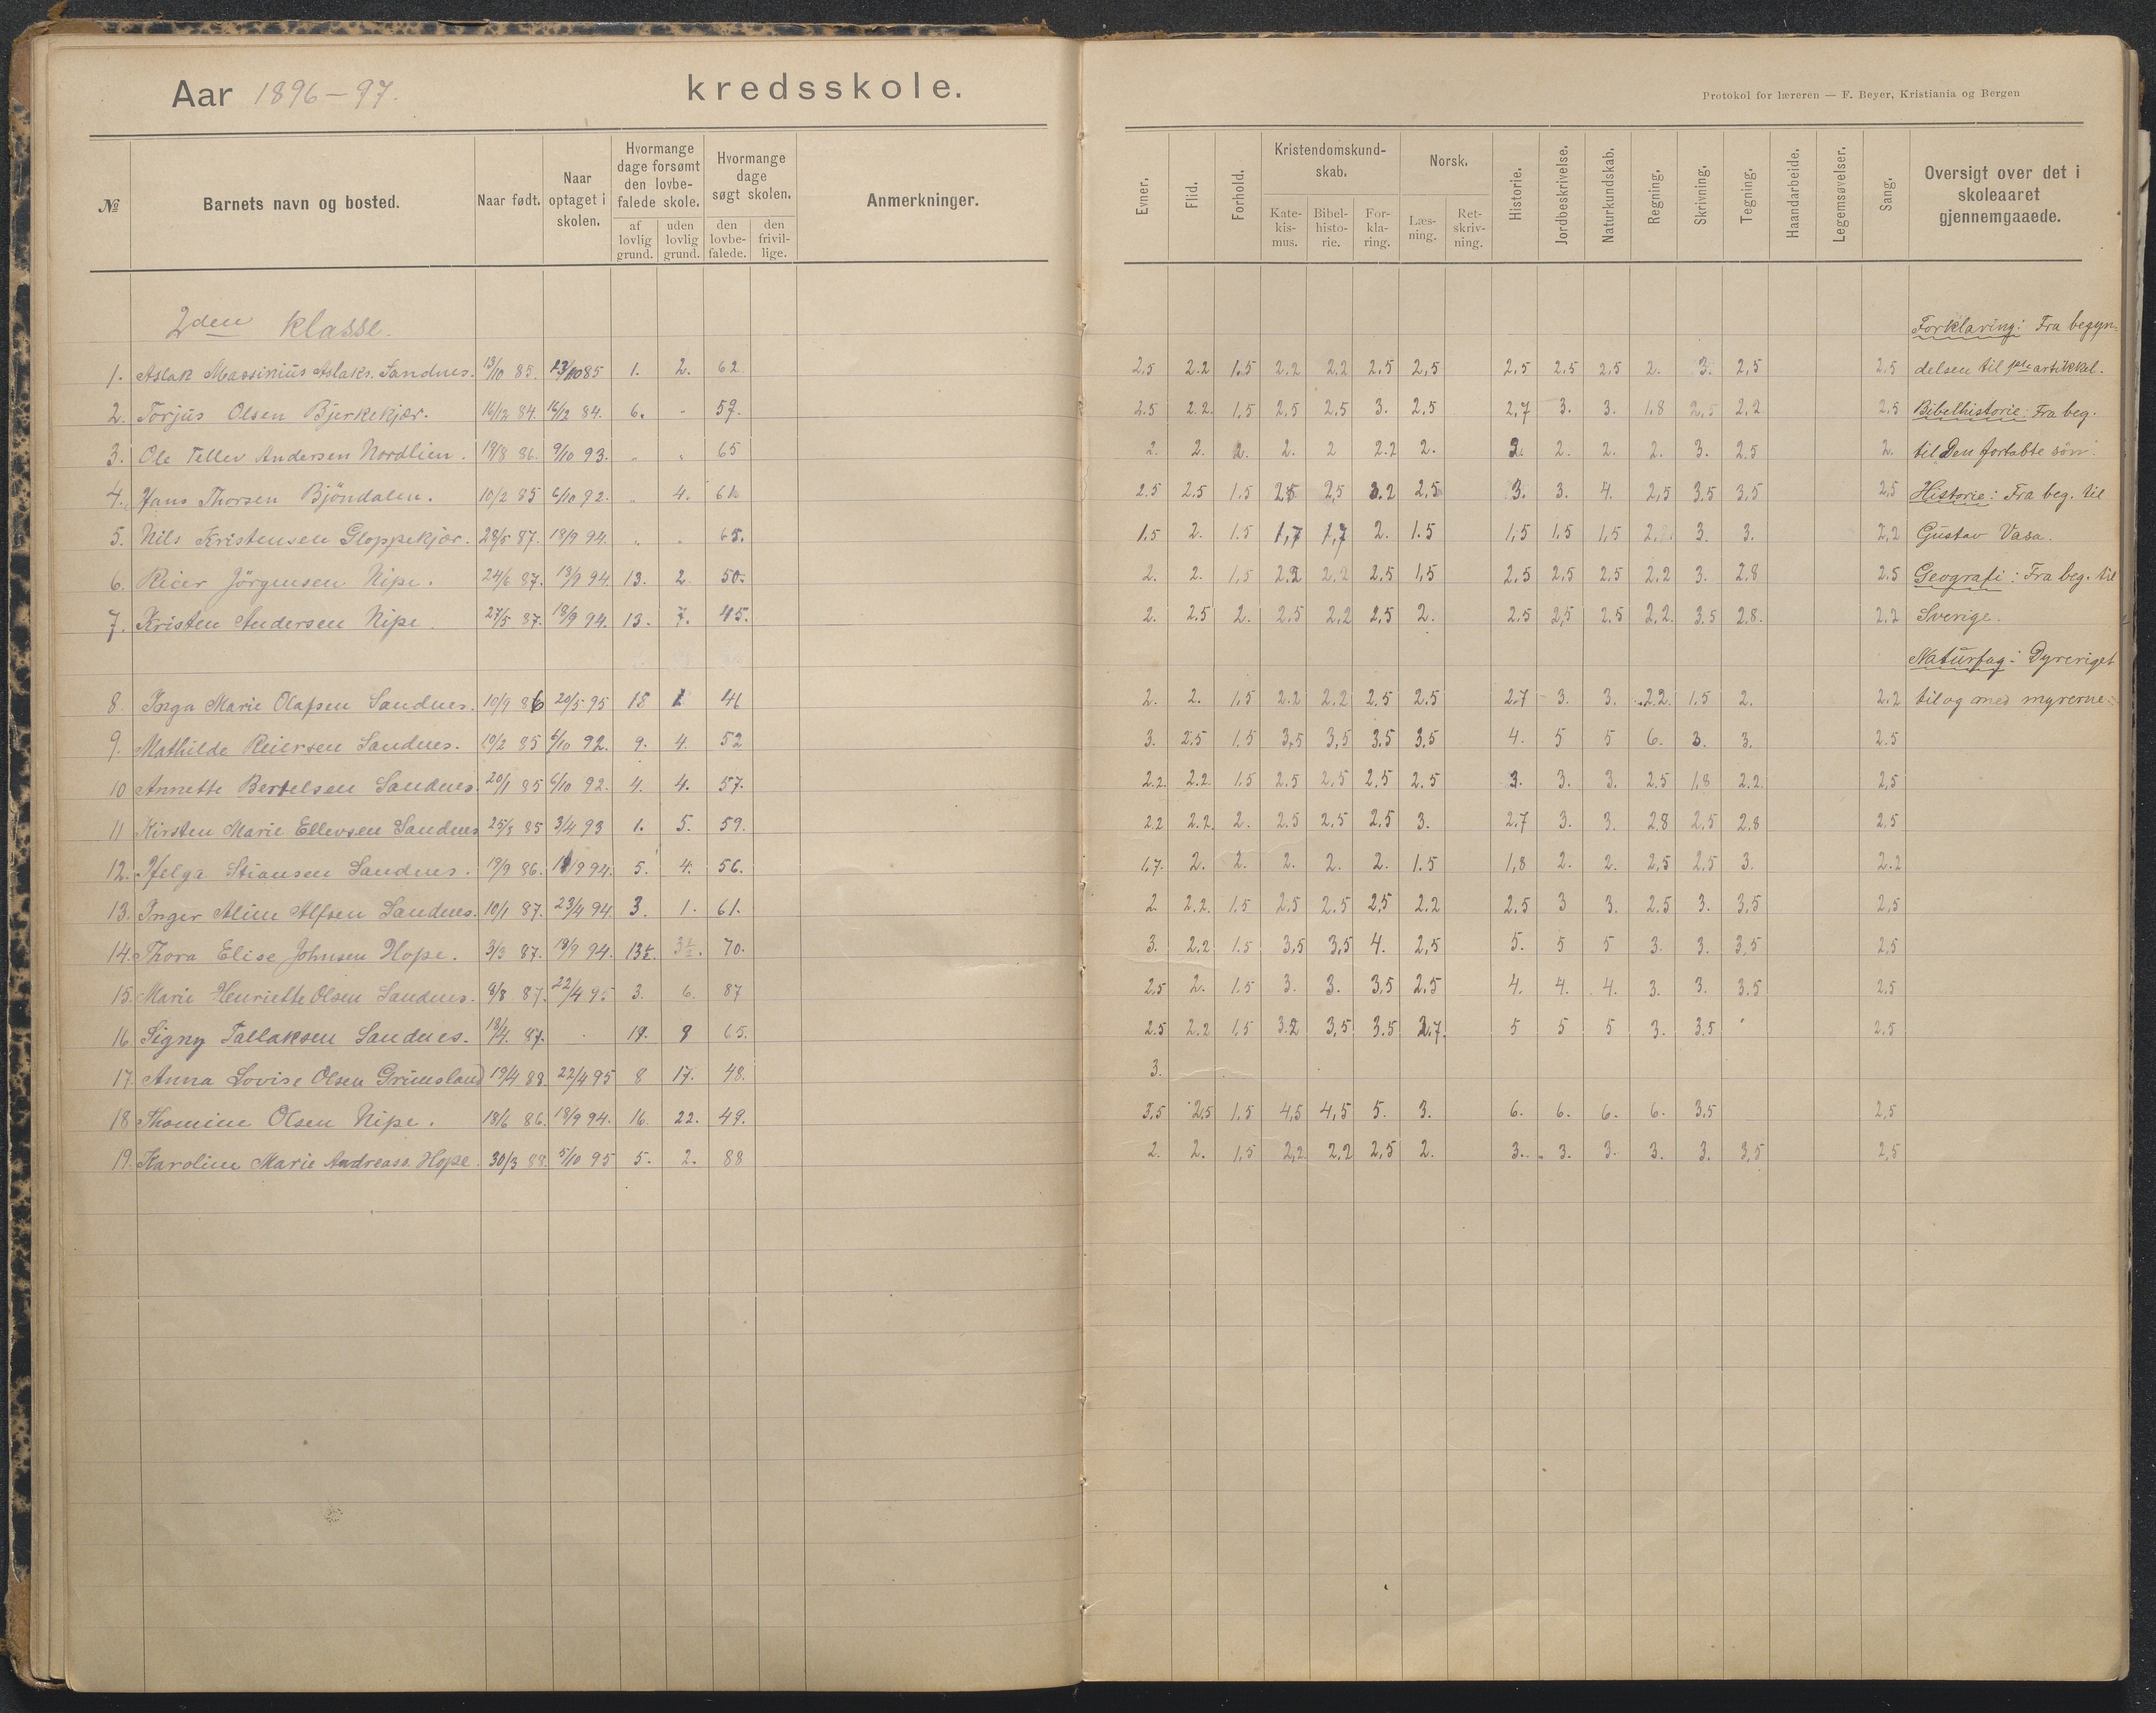 Aar 1896-97. kredsskole.
Protokol for læreren — F. Beyer, Kristiania og Bergen
№ Barnets navn og bosted. Naar født. Naar optaget i skolen. Hvormange dage forsømt den lovbefalede skole. af lovlig grund. uden lovlig grund. Hvormange dage søgt skolen. den lovbefalede. den frivillige. Anmerkninger.
Evner. Flid. Forhold. Kristendomskundskab. Katekismus. Bibelhistorie. Forklaring. Norsk. Læsning. Retskrivning. Historie. Jordbeskrivelse. Naturkundskab. Regning. Skrivning. Tegning. Haandarbeide. Legemsøvelser. Sang. Oversigt over det i skoleaaret gjennemgaaede.
2den klasse.
Forklaring: Fra begyn-
1. Aslak Massinius Aslaks. Sandnes. 13/10 85. 10 85 1. 2. 62 2,5 2.2 1.5 2.2 2.2 2,5 2,5 2,5 2,5 2,5 2. 3. 2,5 2.5 delsen til artikkel.
2. Torjus Olsen Bjerkekjær. 16/12 84. 16/12 84. 6. " 59. 2.5 2.2. 1,5 2,5 2,5 3. 2,5 2,7 3. 3. 1.8 2,5 2,2 2,5 Bibelhistorie: Fra beg.
3. Ole Tellev Andersen Nordlien. 19/8 86. 9/10 93. " " 65 2. 2. 2. 2. 2 2.2 2. 2. 2. 2. 2. 3. 2.5 2. til Den fortabte sön.
4. Hans Thorsen Bjöndalen. 10/2 85 6/10 92. " 4. 61 2.5 2.5 1.5 2,5 2,5 3.2 2,5 3. 3. 4. 2,5 3.5 3,5 2,5 Historie: Fra beg. til
5. Nils Kristensen Gloppekjær. 28/5 87. 18/9 94. " " 65. 1.5 2. 1.5 1,7 1,7 2. 1.5 1,5 1,5 1,5 2. 3. 3. 2,2 Gustav Vasa.
6. Reier Jörgensen Nipe. 24/6 87. 18/9 94. 13. 2. 50. 2. 2. 1,5 2.2 2.2 2,5 1,5 2,5 2,5 2.5 2.2 3. 2.8 2.5 Geografi: Fra beg. til
7. Kristen Andersen Nipe. 27/5 87. 18/9 94. 13. 7. 45. 2. 2.5 2. 2,5 2,2 2,5 2. 2.5 2,5 2.5 2,2. 3.5 2.8. 2.2 Sverige.
Naturfag: Dyreriget
8. Inga Marie Olafsen Sandnes. 10/9 86 20/5 95 18 1 46 2. 2. 1,5 2.2 2.2 2.5 2.5 2.7 3. 3. 2.2. 1.5 2. 2.2 til og med myrerne.
9. Mathilde Reiersen Sandnes. 19/2 85 6/10 92. 9. 4. 52 3. 2.5 1.5 3,5 3,5 3.5 3,5 4. 5 5 6. 3. 3. 2.5
10 Annette Bertelsen Sandnes. 20/1 85 6/10 92. 4. 4. 57. 2.2. 2.2. 1.5 2.5 2,5 2,5 2.5 3. 3. 3. 2.5 1,8 2.2. 2,5
11 Kirsten Marie Ellevsen Sandnes 25/3 85 3/4 93 1. 5. 59. 2.2 2.2. 2. 2.5 2.5 2.5 3. 2.7 3. 3. 2.8 2,5 2.8 2.5
12. Helga Stiansen Sandnes. 19/9 86. 18/9 94. 5. 4. 56. 1.7. 2. 2. 2. 2. 2. 1.5 1,8 2. 2. 2,5 2,5 3. 2.2
13. Inger Aline Alfsen Sandnes. 10/1 87. 23/4 94. 3. 1. 61. 2. 2.2. 1.5 2.5 2.5 2.5 2.2 2.5 3 3. 2.5 3. 3,5 2,5
14. Thora Elise Johnsen Hope. 3/3 87. 18/9 94. 13½. 3½. 70. 3. 2,2 1.5 3,5 3,5 4. 2,5 5. 5 5 3. 3. 3,5 2,5
15. Marie Henriette Olsen Sandnes. 9/8 87. 22/4 95 3. 6. 87 2,5 2. 1.5 3. 3. 3,5 2.5 4. 4. 4. 3. 3. 3.5 2.5
16. Signy Tallaksen Sandnes. 18/4. 87. 19. 9 65. 2.5 2.2 1,5 3.2 3,5 3.5 2.7. 5 5 5 3. 3.5 2.5
17. Anna Lovise Olsen Grimsland 19/4 88. 22/4 95 8 17. 48. 3.
18 Thomine Olsen Nipe. 18/6 86. 18/9 94. 16. 22. 49. 3,5 2,5 1,5 4,5 4,5 5. 3. 6. 6. 6. 6. 3,5 2,5
19. Karoline Marie Andreass. Hope. 30/3 88. 5/10 95 5. 2. 88 2. 2. 1,5 2,2. 2.2 2,5 2. 3. 3. 3. 3. 3. 3,5 2,5